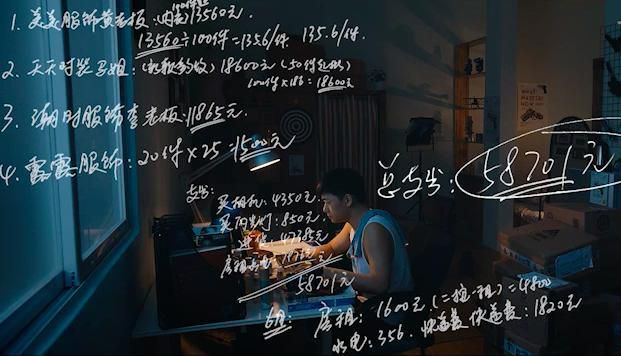 1. 美美服饰黄老板:(内衣)13560元
13560÷100件=135.6/件 135.6/件.
2. 天天时装马姐:18600元(50件起批)
100件×186=18600元
3. 潮时服饰李老板:11865元.
4. 露露服饰:20件×25=1500元
总支出:58701元
支出:
买相机:4350元.
买闪光灯:850元.
58701元
房租:1600元.(二押一租)=4800
水电:356. 快递费:1820元